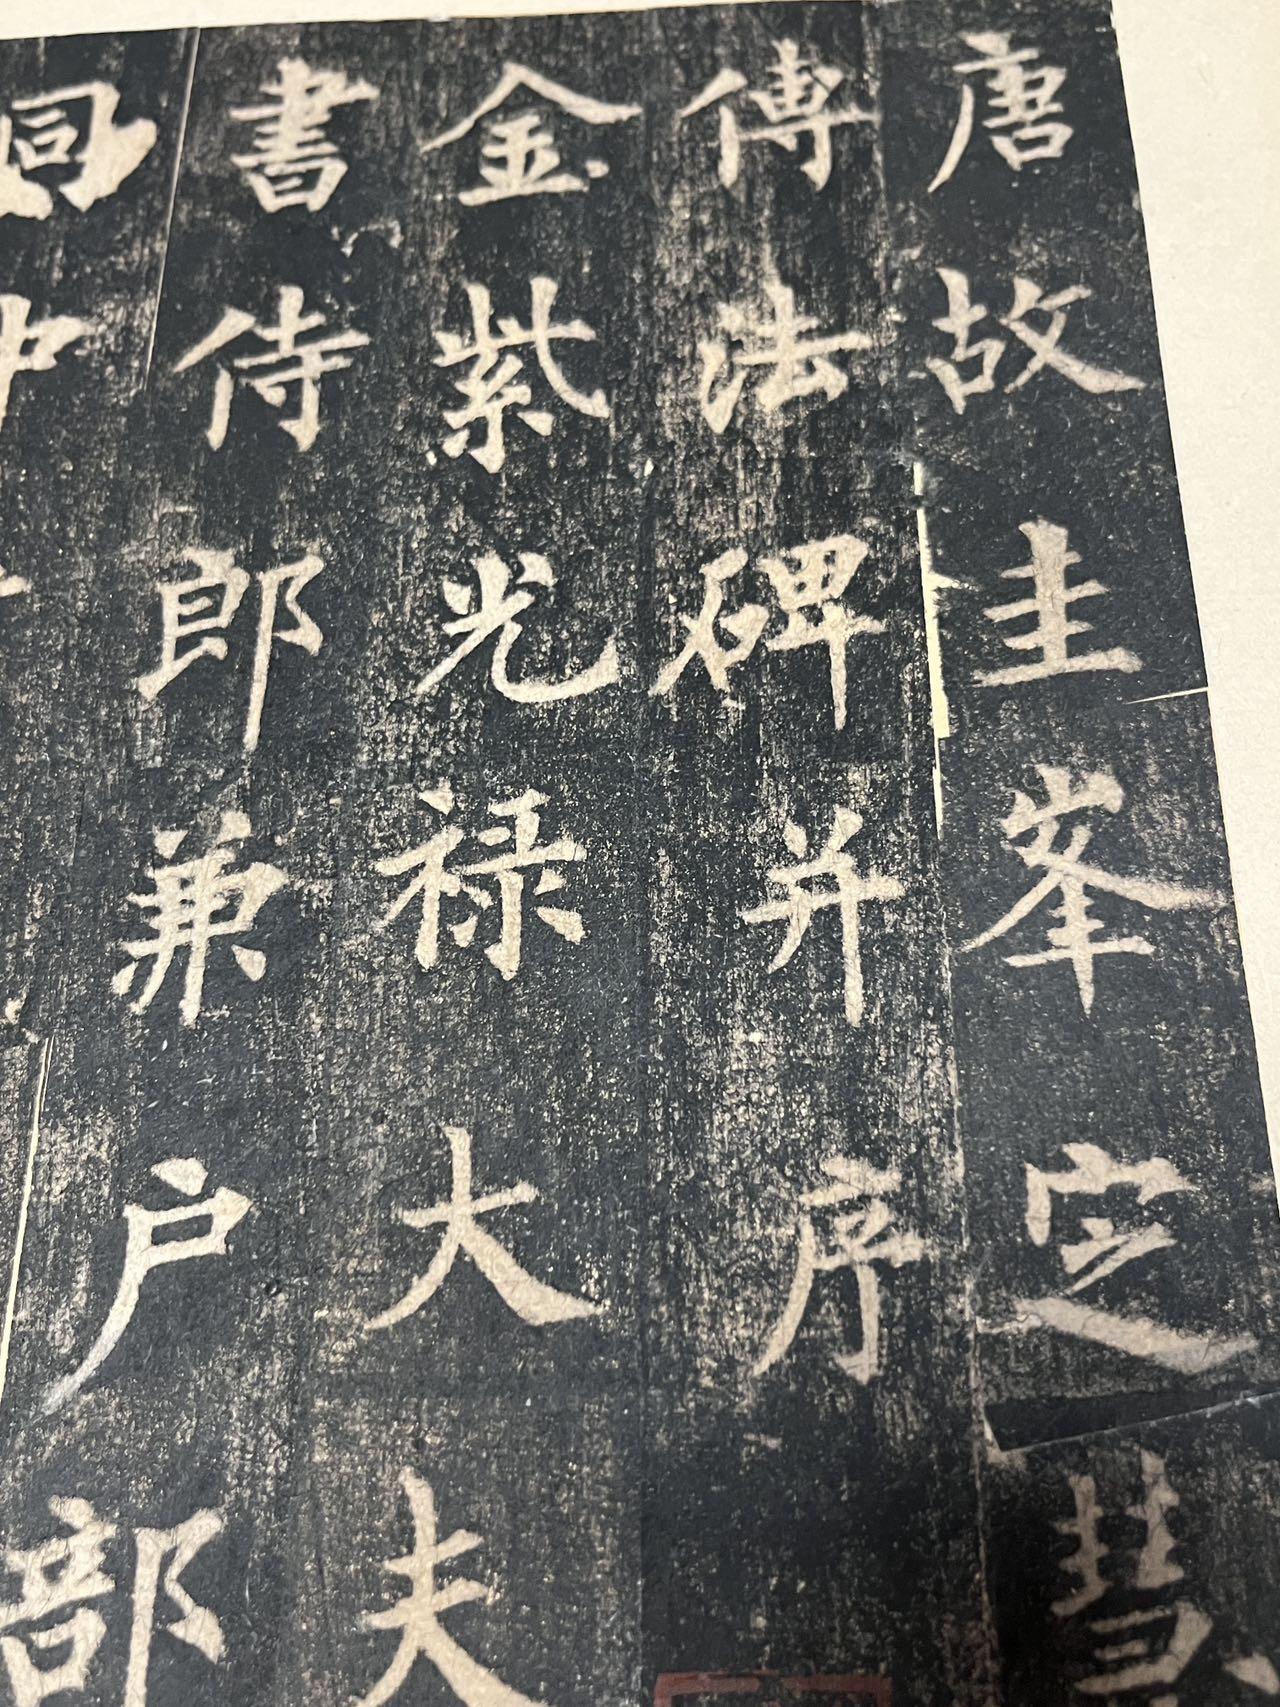 唐故圭峯定慧
傳法碑并序
金紫光禄大夫
書侍郎兼户部
同中